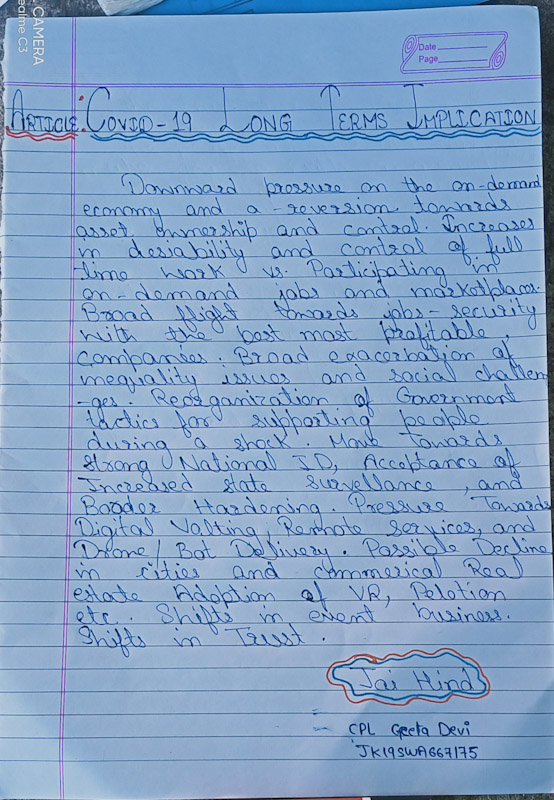 CAMERA
realme C3
Date
Page
ARTICLE: COVID-19 LONG TERMS IMPLICATION
Downward pressure on the on-demand
economy and a -reversion towards
asset ownership and control. Increases
in desiability and control of full
time work vs. Participating in
on-demand jobs and marketplaces.
Broad flight towards jobs-security
with the best most profitable
Companies. Broad exacerbation of
inequality issues and social challen
-ges. Reorganization of Government
tactics for supporting people
during a shock. Move towards
Strong National ID, Acceptance of
Increased state Survellance, and
Boader Hardening. Pressure Towards
Digital Volting, Remote Services, and
Drone/Bot Delivery. Possible Decline
in cities and commerical Real
estate Adoption of VR, Pelotion
etc. Shifts in event business.
Shifts in Trust.
Jai Hind
CPL Geeta Devi
JK19SWA667175